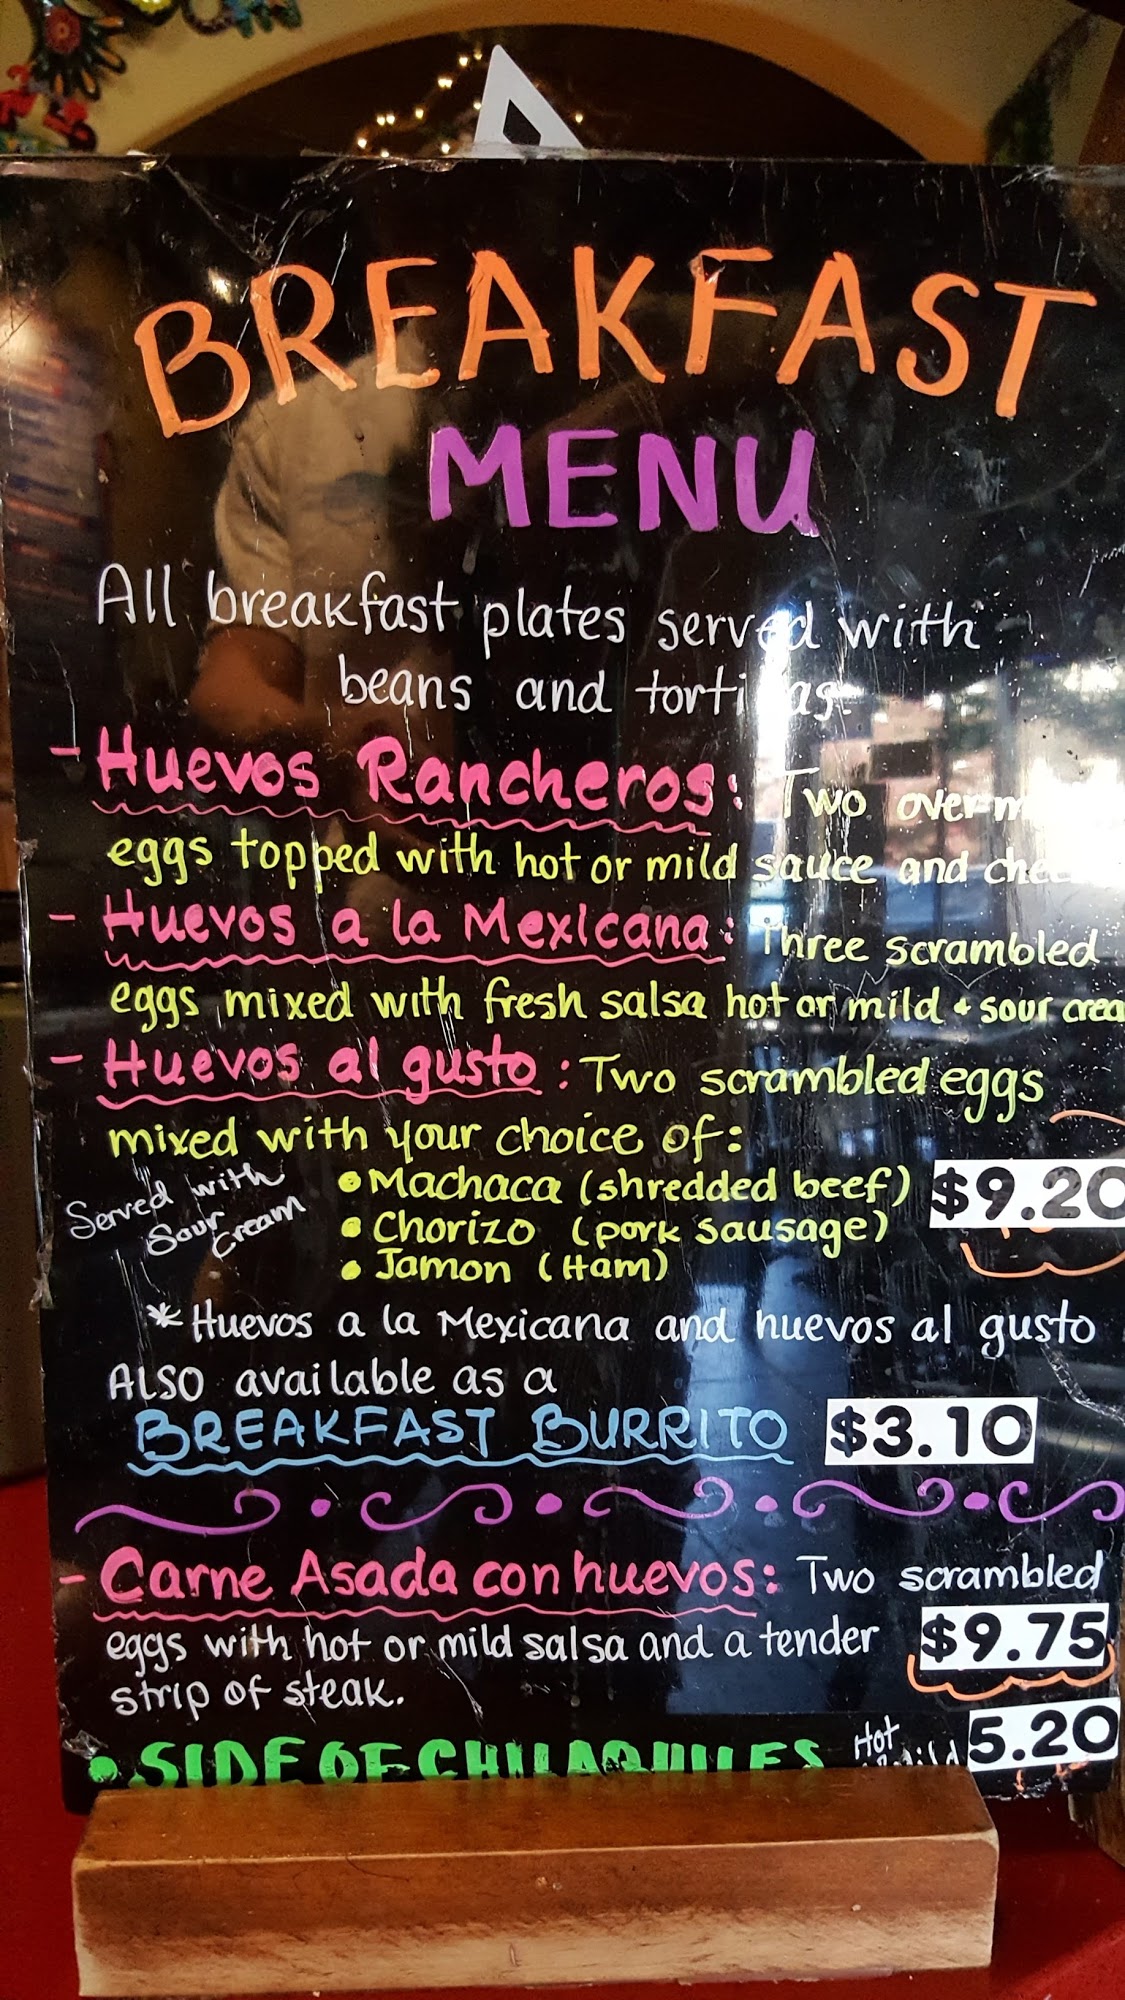 BREAKFAST
MENU
All breakfast plates served with
beans and
- Huevos Rancheros: Two
eggs topped with hot or mild sauce and
- Huevos a la Mexicana: Three scrambled
eggs mixed with fresh salsa hot or mild + sour
- Huevos al gusto: Two scrambled eggs
mixed with your choice of:
Served with
Sour
cream
• Machaca (shredded beef) $9.20
• Chorizo (pork sausage)
• Jamon (Ham)
* Huevos a la Mexicana and huevos al gusto
ALSO available as a
BREAKFAST BURRITO $3.10
- Carne Asada con huevos: Two scrambled
eggs with hot or mild salsa and a tender $9.75
strip of steak.
• SIDE OF CHILAQUILES Hot 5.20